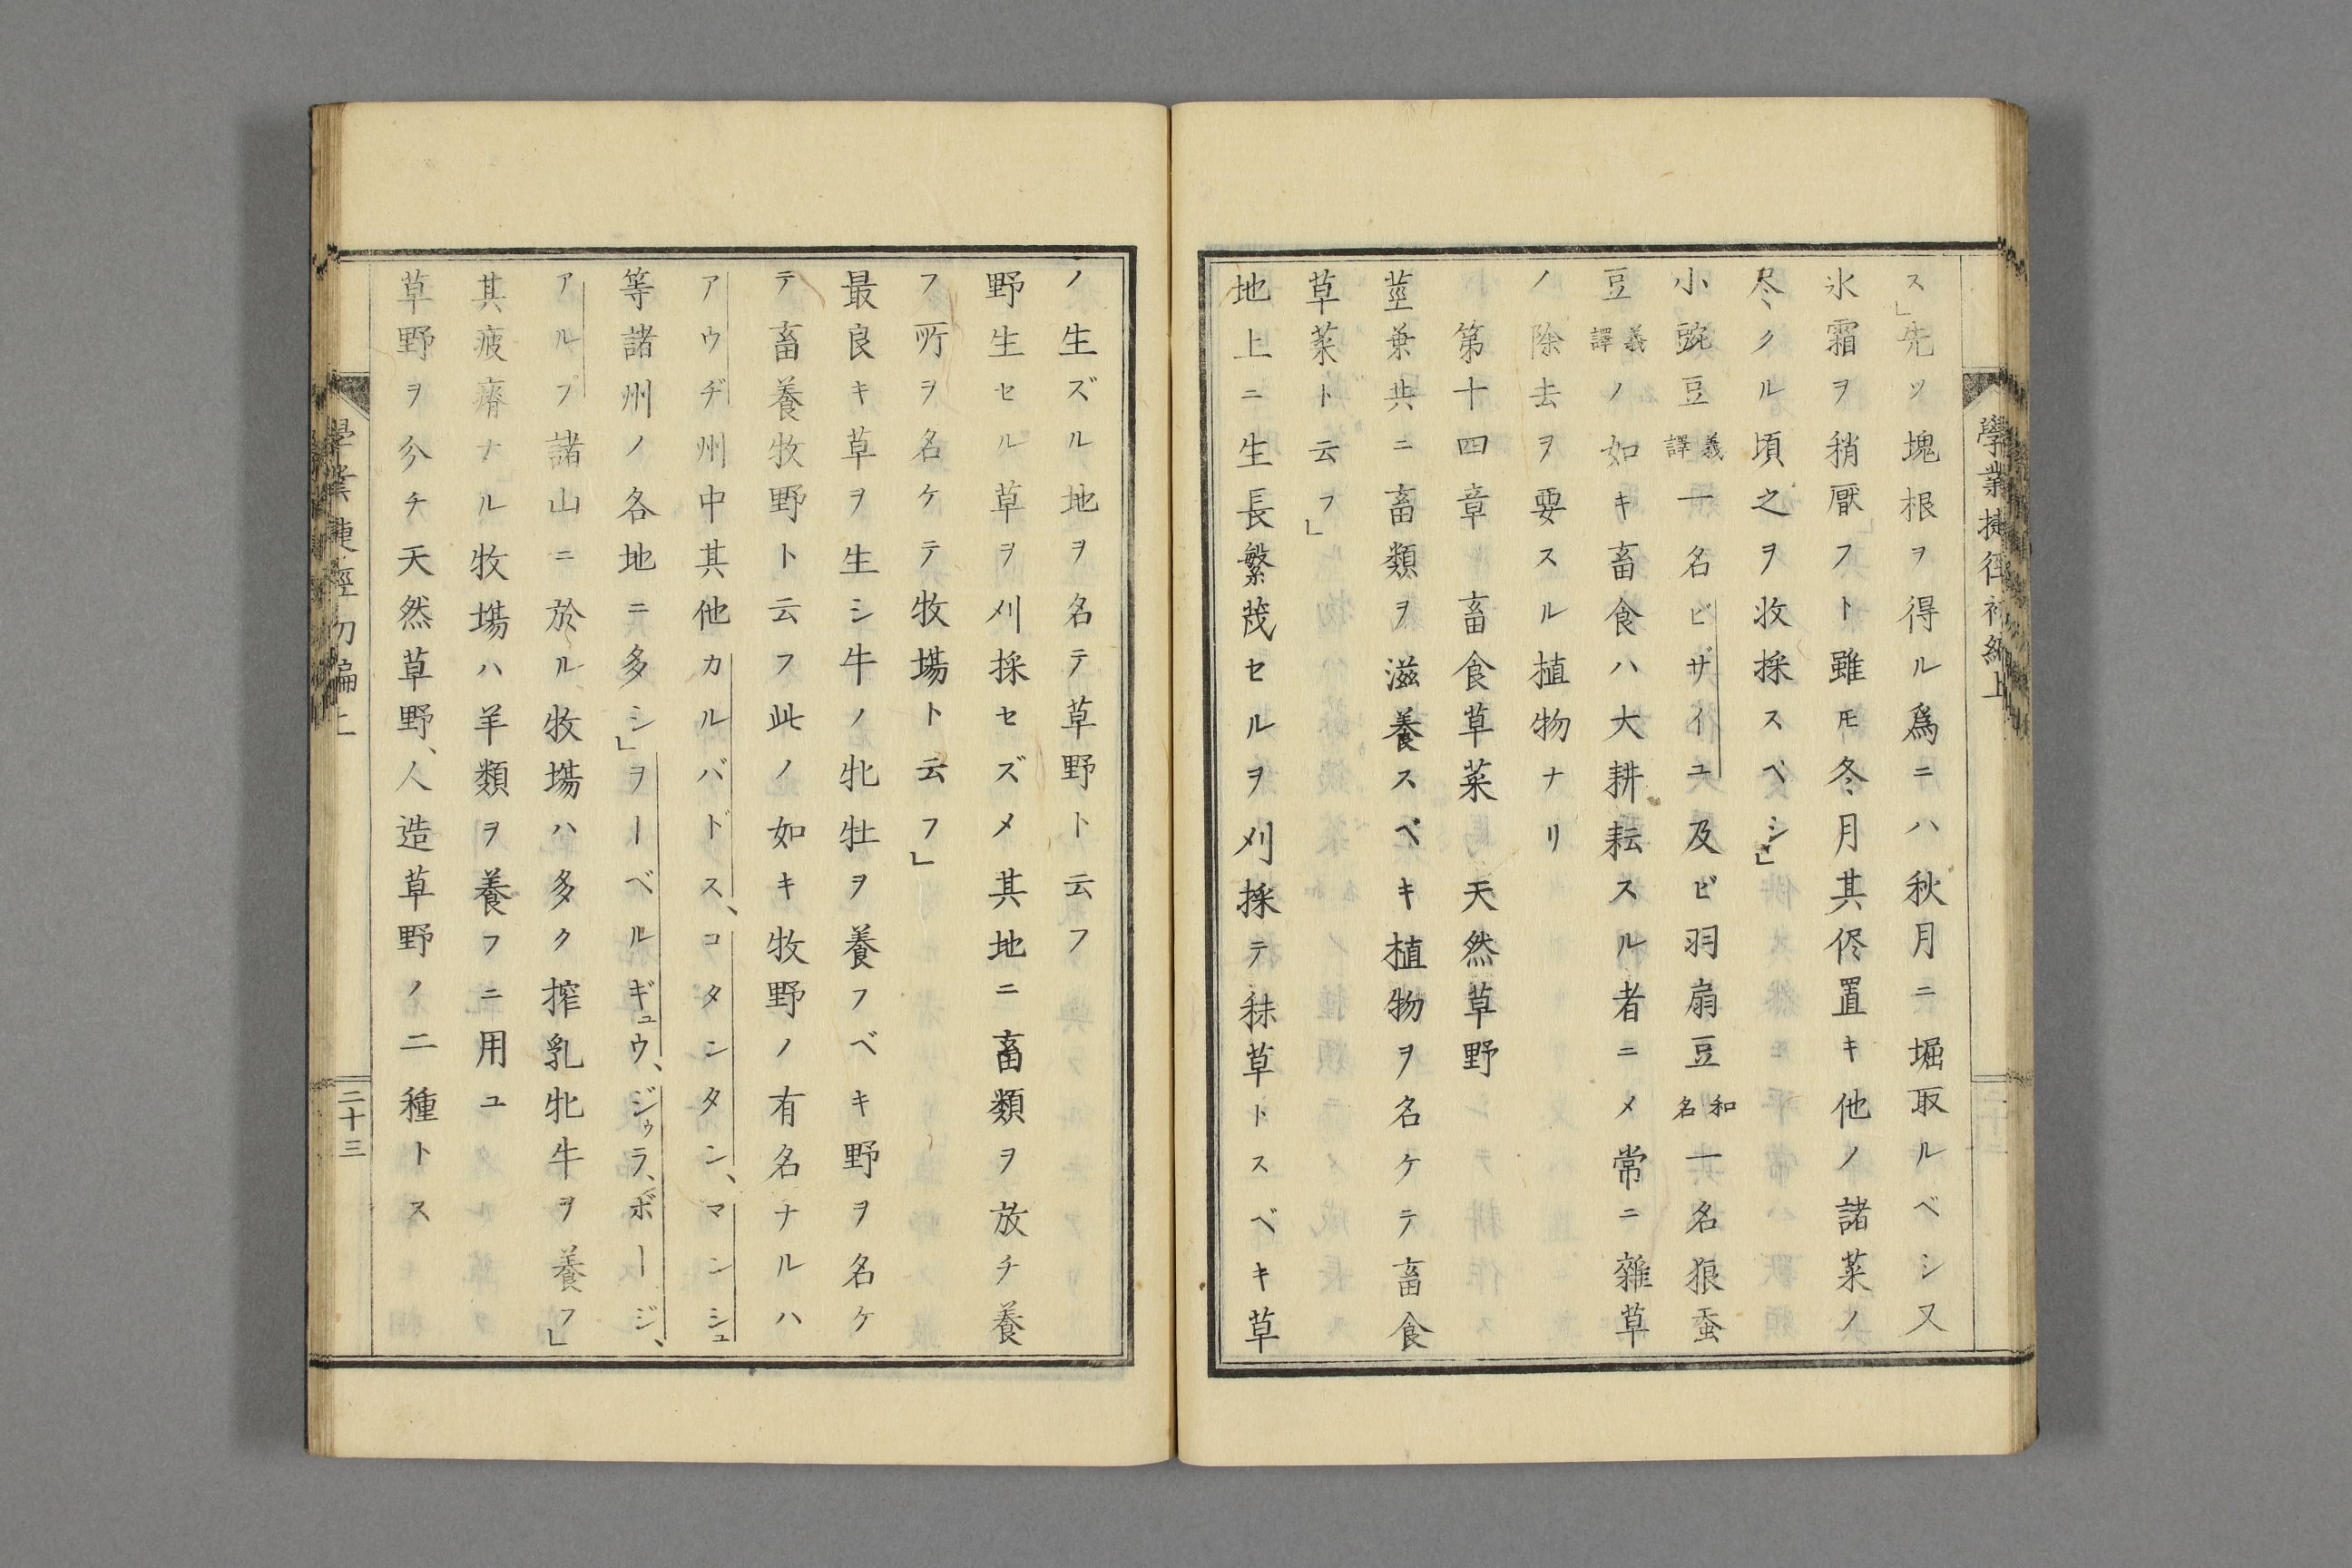 ス」先ツ塊根ヲ得ル爲ニハ秋月ニ堀取ルベシ又
氷霜ヲ稍厭フト雖モ冬月其侭置キ他ノ諸菜ノ
尽クル頃之ヲ收採スベシ」
小豌豆義譯一名ビザイユ及ビ羽扇豆和名一名狼蚕
豆義譯ノ如キ畜食ハ大耕耘スル者ニメ常ニ雜草
ノ除去ヲ要スル植物ナリ
第十四章 畜食草菜 天然草野
莖兼共ニ畜類ヲ滋養スベキ植物ヲ名ケテ畜食
草菜ト云フ」
地上ニ生長繁茂セルヲ刈採テ秣草トスベキ草
ノ生ズル地ヲ名テ草野ト云フ
野生セル草ヲ刈採セズメ其地ニ畜類ヲ放チ養
フ所ヲ名ケテ牧場ト云フ」
最良キ草ヲ生シ牛ノ牝牡ヲ養フベキ野ヲ名ケ
テ畜養牧野ト云フ此ノ如キ牧野ノ有名ナルハ
アウヂ州中其他カルバドス、コタンタン、マンシュ
等諸州ノ各地ニ多シ」ヲーベルギュウ、ジゥラ、ボージ、
アルプ諸山ニ於ル牧場ハ多ク搾乳牝牛ヲ養フ」
其疲瘠ナル牧場ハ羊類ヲ養フニ用ユ
草野ヲ分チ天然草野、人造草野ノ二種トス
學業捷径初編上
二十三